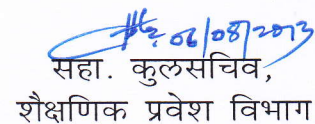 06/08/2013
सहा. कुलसचिव,
शैक्षणिक प्रवेश विभाग